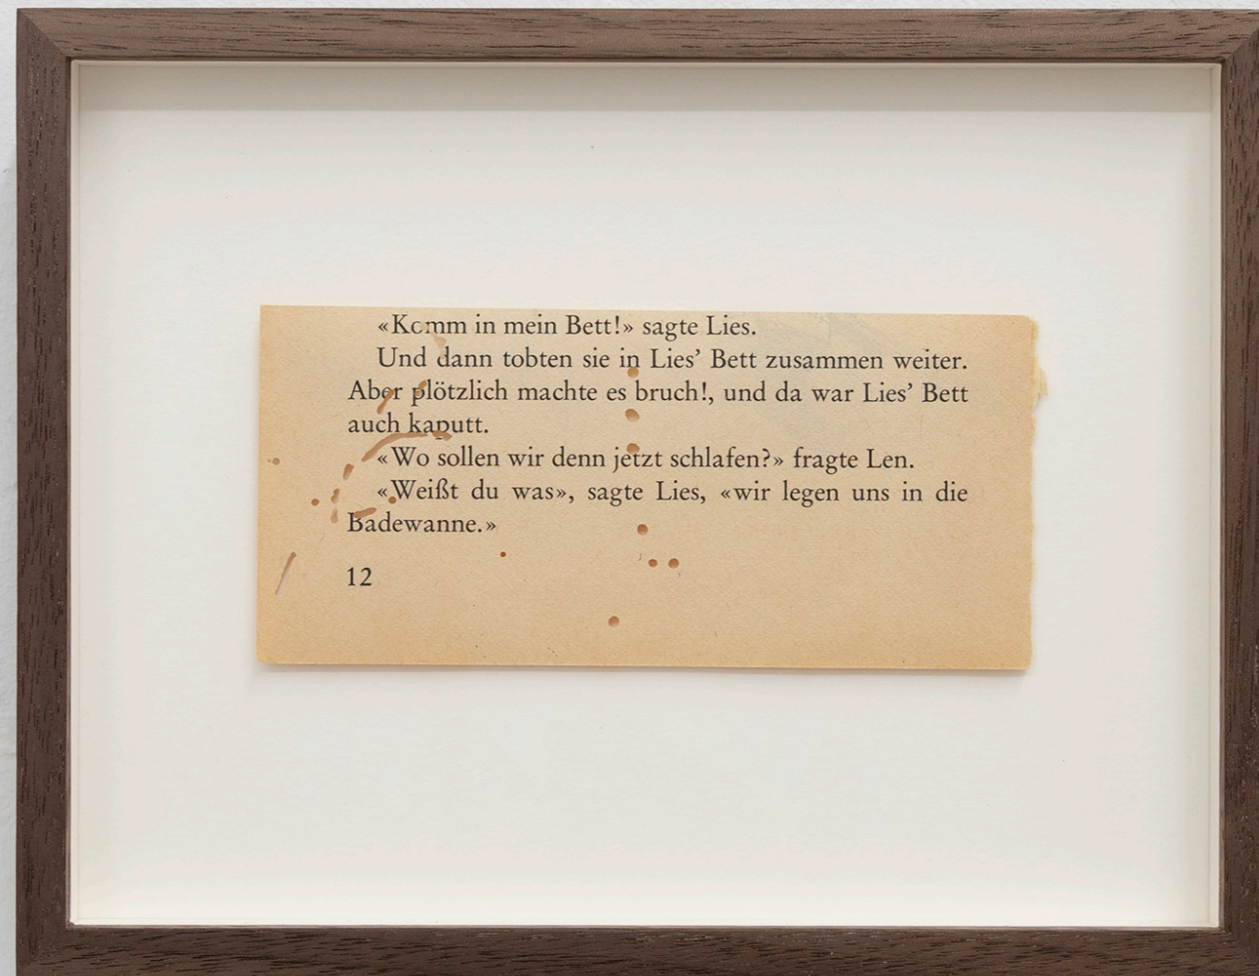 «Komm in mein Bett!» sagte Lies.
Und dann tobten sie in Lies’ Bett zusammen weiter.
Aber plötzlich machte es bruch!, und da war Lies’ Bett
auch kaputt.
«Wo sollen wir denn jetzt schlafen?» fragte Len.
«Weißt du was», sagte Lies, «wir legen uns in die
Badewanne.»
12